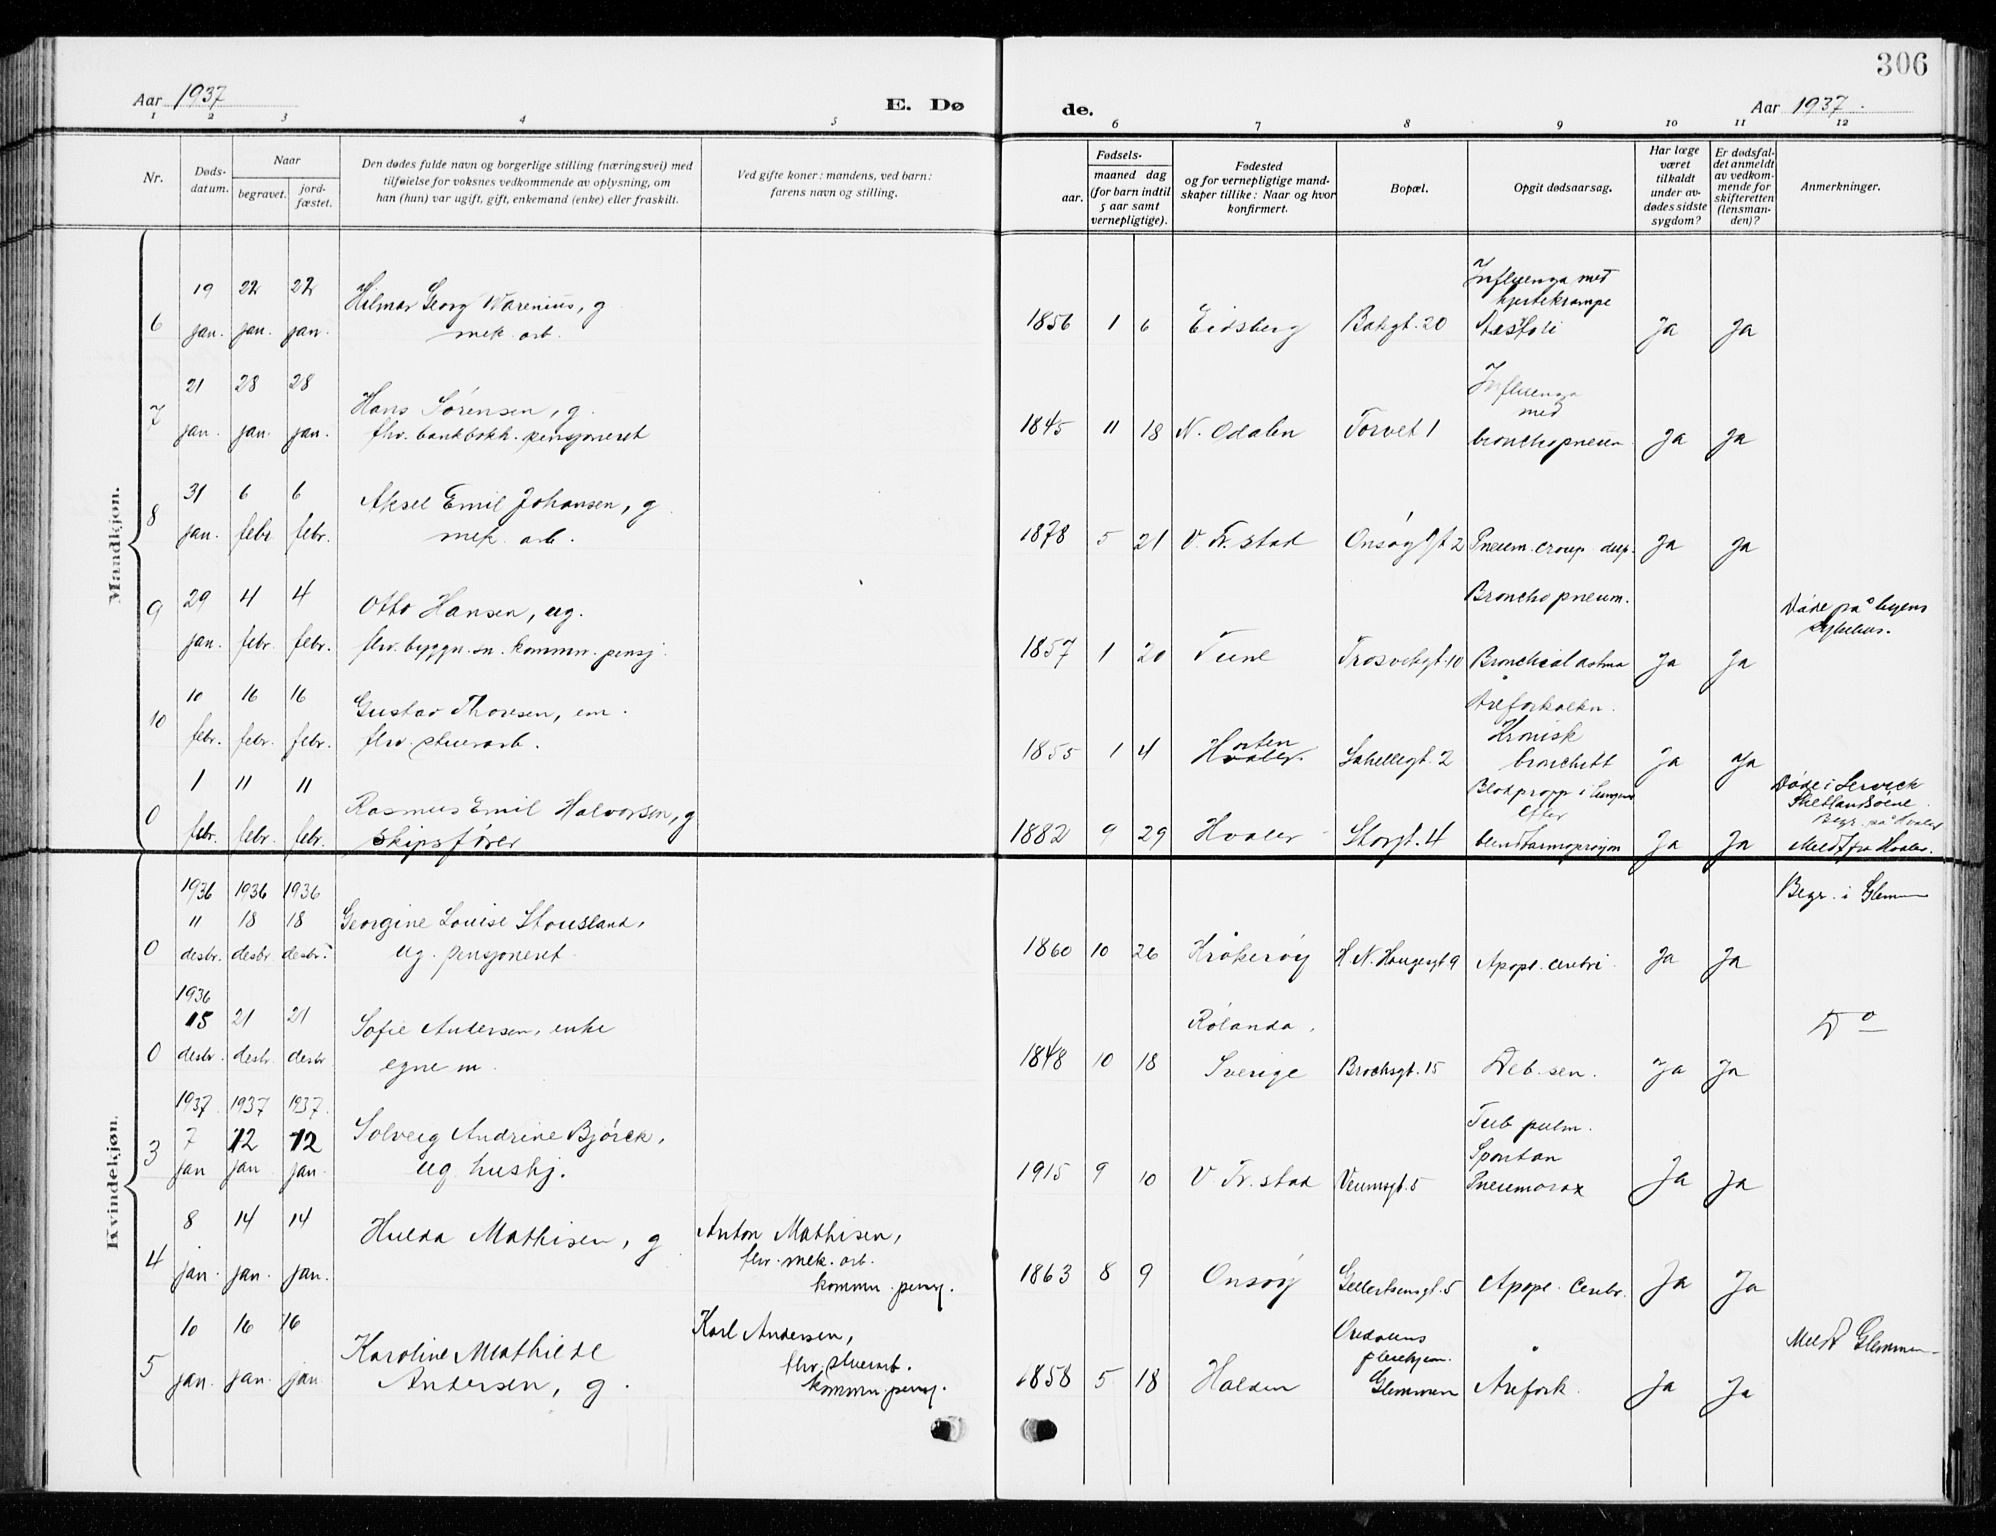 306
Aar 1937
E. Dø
de.
Aar 1937.
1 2 3 4 5 6 7 8 9 10 11 12
Nr.
Døds-
datum.
Naar
begravet.
jord-
fæstet.
Den dødes fulde navn og borgerlige stilling (næringsvei) med
tilføielse for voksnes vedkommende av oplysning, om
han (hun) var ugift, gift, enkemand (enke) eller fraskilt.
Ved gifte koner: mandens, ved barn:
farens navn og stilling.
Fødsels-
aar.
maaned dag
(for barn indtil
5 aar samt
vernepligtige).
Fødested
og for vernepligtige mand-
skaper tillike: Naar og hvor
konfirmert.
Bopæl.
Opgit dødsaarsag.
Har læge
været
tilkaldt
under av-
dødes sidste
sygdom?
Er dødsfal-
det anmeldt
av vedkom-
mende for
skifteretten
(lensman-
den)?
Anmerkninger.
Mandkjøn.
6
19 jan. 22 jan. 22 jan.
Hilmar Georg Warenius, g
mek. arb.
1856 1 6 Eidsberg Bakgt. 20
Influenza med
hjertekrampe
Ja Ja
7
21 jan. 28 jan. 28 jan.
Hans Sørensen, g.
fhv. bankbokh. pensjoneret
1845 11 18 N. Odalen Torvet 1
Influenza
med
bronchopneum
Ja Ja
8
31 jan. 6 febr. 6 febr.
Aksel Emil Johansen, g
mek. arb.
1878 5 21 V. Fr.stad Onsøygt 2 Pneum. croup. dup. Ja Ja
9
29 jan. 4 febr. 4 febr.
Otto Hansen, ug.
fhv. byggn. sn. kommn. pensj.
1857 1 20 Tune Trosvikgt. 10
Bronchopneum.
Bronchial astma
Ja Ja
Døde på byens
sykehus.
10
10 febr. 16 febr. 16 febr.
Gustav Thoresen, em.
fhv. stuerarb.
1855 1 4 Horten
Hvaler.
Sahellegt. 2
Åreforkalkn.
Kronisk
bronchitt
Ja Ja
0
1 febr. 11 febr. 11 febr.
Rasmus Emil Halvorsen, g
skipsfører
1882 9 29 Hvaler Storgt. 4
Blodpropp i lungene
efter
blindtarmoprasjon
Ja Ja
Døde i Lerwick
Shetlandsøene.
Begr. på Hvaler
Meldt fra Hvaler.
Kvindekjøn.
0
1936 11 desbr. 1936 18 desbr. 1936 18 desbr.
Georgine Louise Stousland,
ug. pensjoneret
1860 10 26 Kråkerøy H. N. Haugesgt 9 Apopl. cerebri. Ja Ja
Begr. i Glemmen
0
1936 15 desbr. 21 desbr. 21 desbr
Sofie Andersen, enke
egne m.
1848 10 18
Rölanda,
Sverige
Brochsgt. 15 Deb. sen. Ja Ja
Do
3
1937. 7 jan 1937 12 jan 1937. 12 jan.
Solveig Andrine Bjørck,
ug. hushj.
1915 9 10 V. Fr.stad Veumsgt. 5
Tub pulm.
Spontan
Pneumorax
Ja Ja
4
8 jan. 14 jan. 14 jan.
Hulda Mathisen, g
Anton Mathisen,
fhv. mek. arb.
kommn. pensj.
1863 8 9 Onsøy Gellertsensgt. 5 Apopl. cerebr. Ja Ja
5
10 jan. 16 jan. 16 jan
Karoline Mathilde
Andersen, g.
Karl Andersen,
fhv. stuerarb.
kommn. pensj.
1858 5 18 Halden
pleiehjem.
Glemmen
Årefork. Ja Ja
Meldt Glemmen